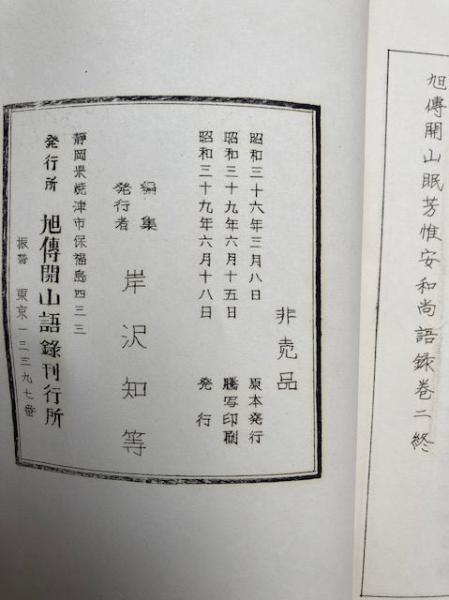 旭傳開山眠芳惟安和尚語録巻二終
非売品
昭和三十六年三月八日 原本発行
昭和三十九年六月十五日 謄写印刷
昭和三十九年六月十八日 発行
編集
発行者 岸沢知等
静岡県焼津市保福島四三三
発行所 旭傳開山語録刊行所
振替 東京一三三九七番